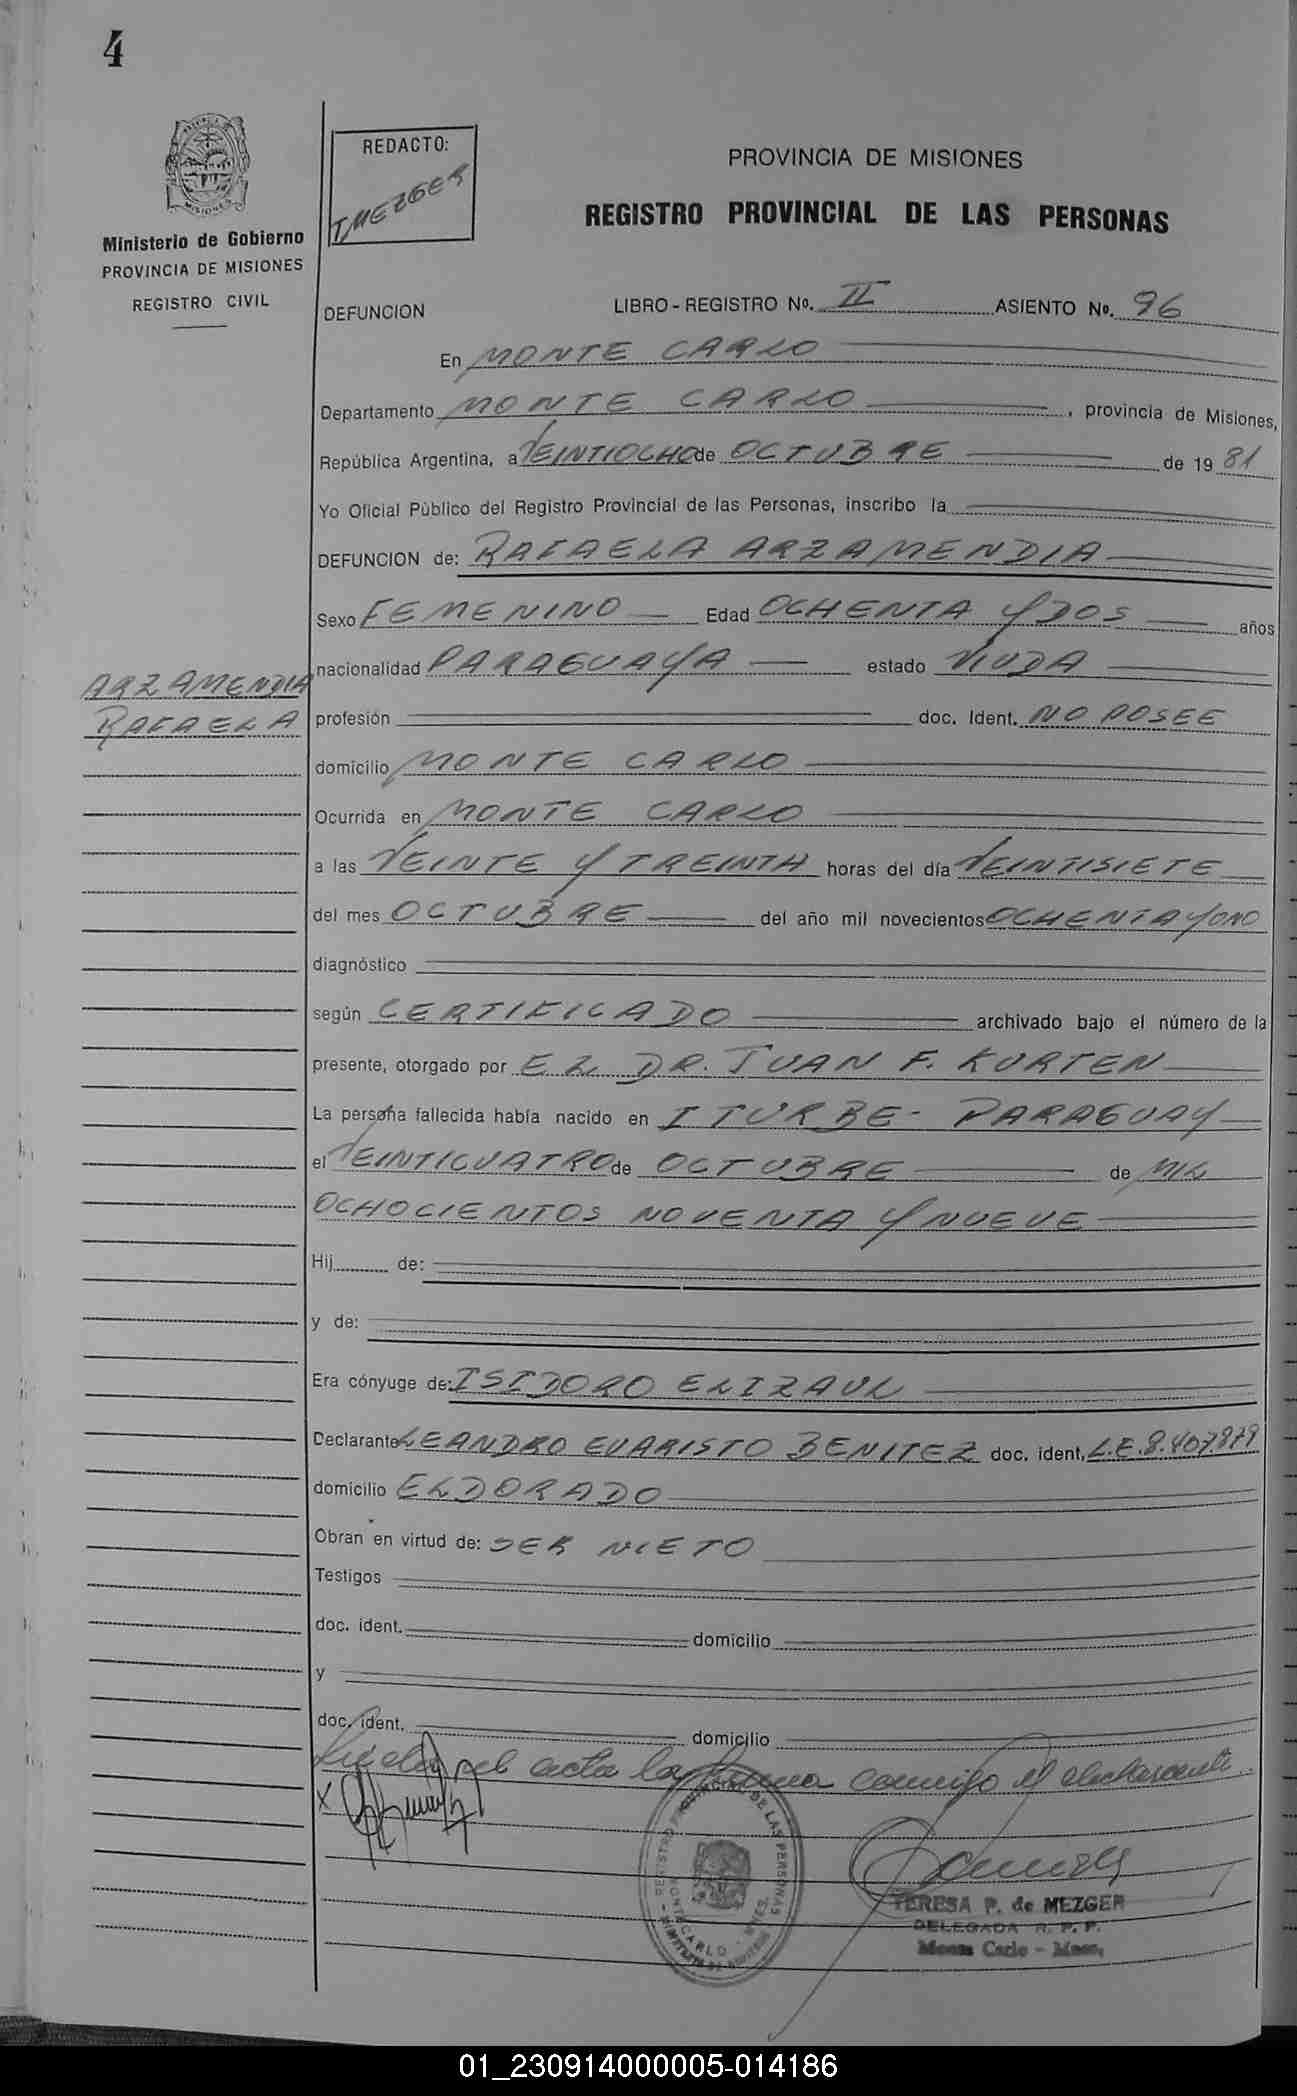 4
REDACTO:
T. MEZGER
PROVINCIA DE MISIONES
REGISTRO PROVINCIAL DE LAS PERSONAS
MISIONES
Ministerio de Gobierno
PROVINCIA DE MISIONES
REGISTRO CIVIL
DEFUNCION LIBRO - REGISTRO No. II ASIENTO No. 96
En MONTE CARLO
Departamento MONTE CARLO, provincia de Misiones,
República Argentina, a VEINTIOCHO de OCTUBRE de 19 81
Yo Oficial Público del Registro Provincial de las Personas, inscribo la
DEFUNCION de: RAFAELA ARZAMENDIA
Sexo FEMENINO Edad OCHENTA Y DOS años
nacionalidad PARAGUAYA estado VIUDA
ARZAMENDIA
RAFAELA
profesión doc. Ident. NO POSEE
domicilio MONTE CARLO
Ocurrida en MONTE CARLO
a las VEINTE Y TREINTA horas del día VEINTISIETE
del mes OCTUBRE del año mil novecientos OCHENTA Y UNO
diagnóstico
según CERTIFICADO archivado bajo el número de la
presente, otorgado por EL DR. JUAN F. KURTEN
La persona fallecida había nacido en ITURBE - PARAGUAY
el VEINTICUATRO de OCTUBRE de MIL
OCHOCIENTOS NOVENTA Y NUEVE
Hij de:
y de:
Era cónyuge de: ISIDORO ELIZAUL
Declarante LEANDRO EVARISTO BENITEZ doc. ident. L.E. 8.407.879
domicilio ELDORADO
Obran en virtud de: SER NIETO
Testigos
doc. ident. domicilio
y
doc. ident. domicilio
Leída el acta la firma conmigo el declarante.
X
REGISTRO PROVINCIAL DE LAS PERSONAS
MONTECARLO - MNES.
TERESA P. de MEZGER
DELEGADA R. P. P.
Monte Carlo - Mnes.
01_230914000005-014186